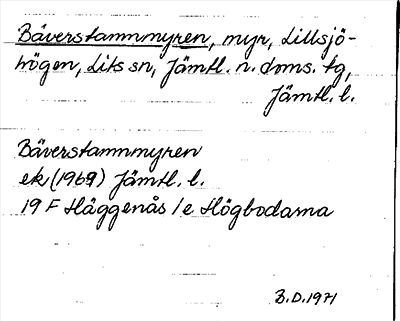 Bäverstammmyren, myr, Lillsjö-
högen, Lits sn, Jämtl. n. doms. tg,
Jämtl. l.
Bäverstammmyren
ek (1969) Jämtl. l.
19 F Häggenås 1 e Högbodarna
B.D. 1971